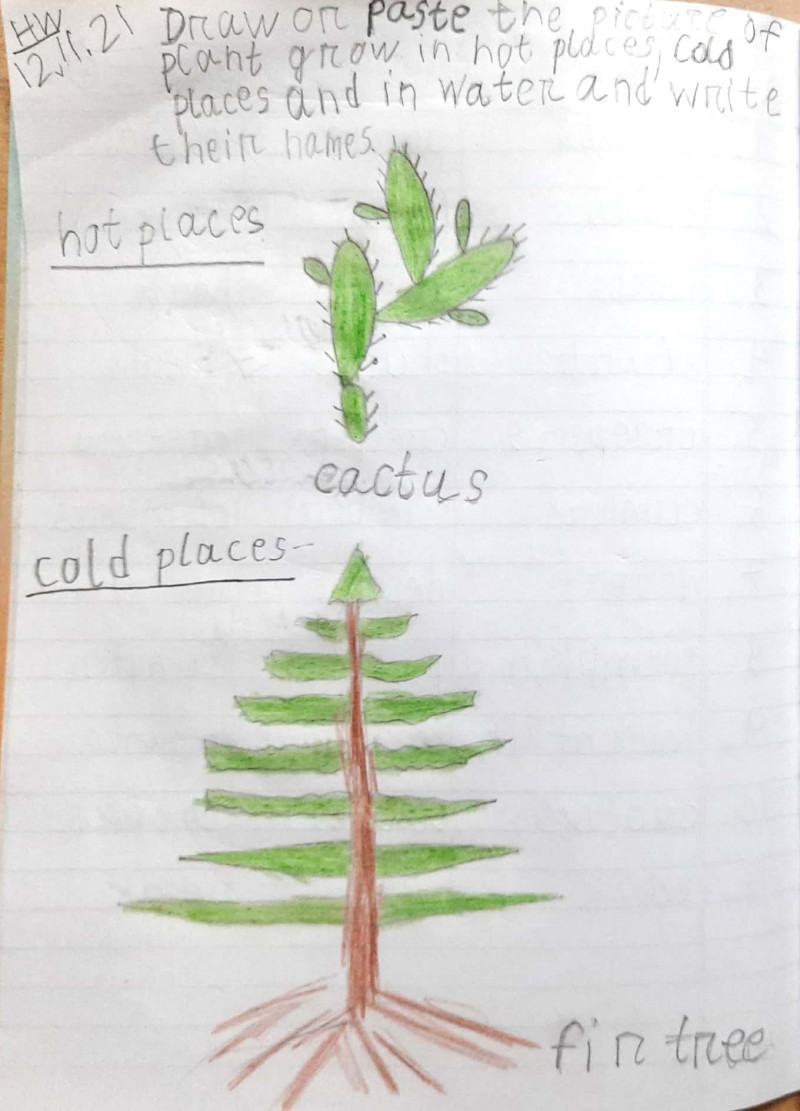 HW
12.11.21
Draw or paste the picture of
plant grow in hot places, cold
places and in water and write
their names.
hot places
cactus
cold places-
fir tree